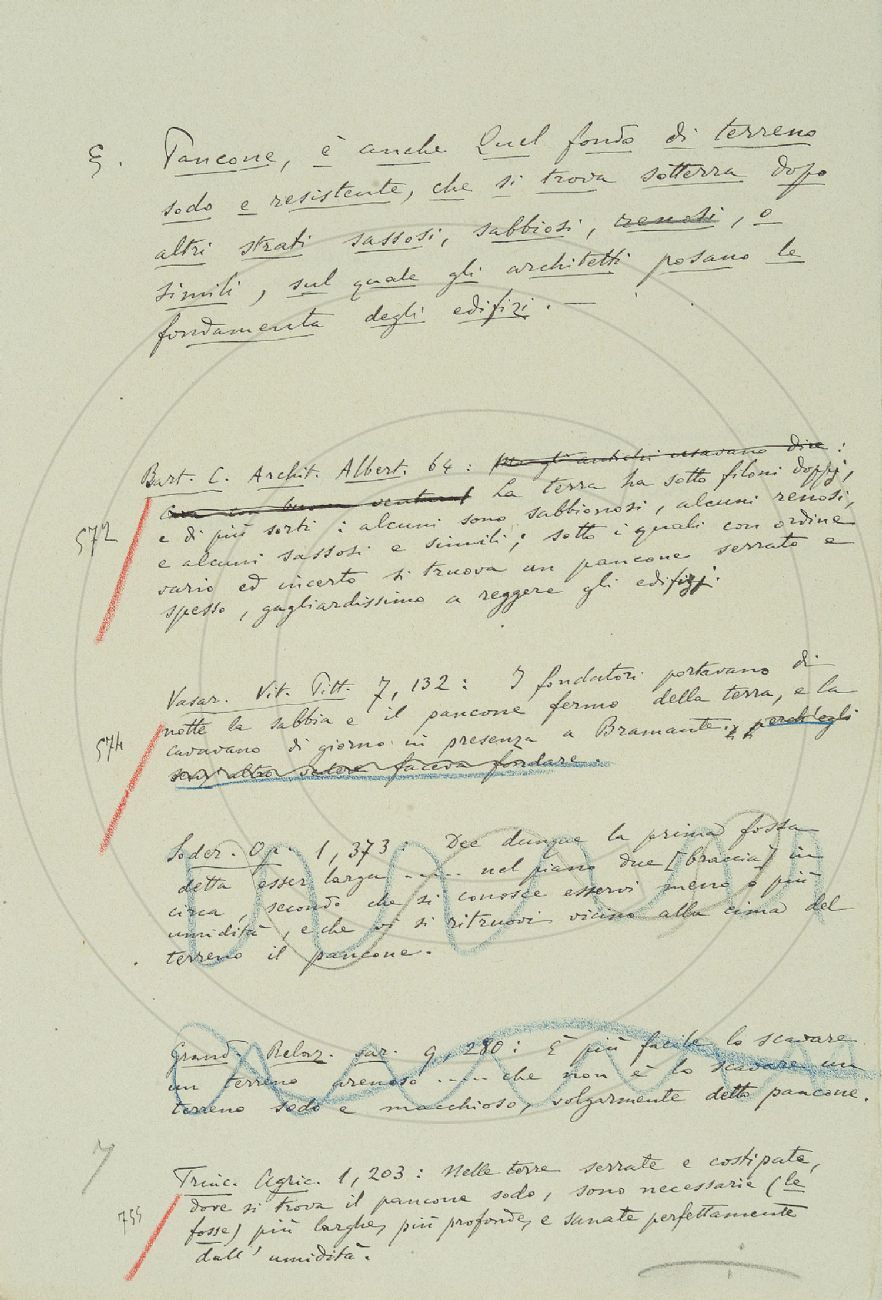 §. Pancone, è anche Quel fondo di terreno
sodo e resistente, che si trova sotterra dopo
altri strati sassosi, sabbiosi, renosi, o
simili, sul quale gli architetti posano le
fondamenta degli edifizi. —
Bart. C. Archit. Albert. 64: Ma gli antichi usavano dire:
con buona ventura! La terra ha sotto filoni doppj,
e di più sorti: alcuni sono sabbionosi, alcuni renosi,
572 e alcuni sassosi e simili; sotto i quali con ordine
vario ed incerto si truova un pancone serrato e
spesso, gagliardissimo a reggere gli edifizj.
Vasar. Vit. Pitt. 7, 132: I fondatori portavano di
notte la sabbia e il pancone fermo della terra, e la
574 cavavano di giorno in presenza a Bramante; perch'egli
senz'altro vedere faceva fondare.
Soder. Op. 1, 373: Dee dunque la prima fossa
detta esser larga ..... nel piano due [braccia] in
circa, secondo che si conosce esservi meno o più
umidità, e che vi si ritruovi vicino alla cima del
terreno il pancone.
Grand. Relaz. var. 9, 280: È più facile lo scavare
un terreno arenoso ..... che non è lo scavare un
terreno sodo e macchioso, volgarmente detto pancone.
7
Trinc. Agric. 1, 203: Nelle terre serrate e costipate,
dove si trova il pancone sodo, sono necessarie (le
755 fosse) più larghe, più profonde, e sanate perfettamente
dall'umidità.